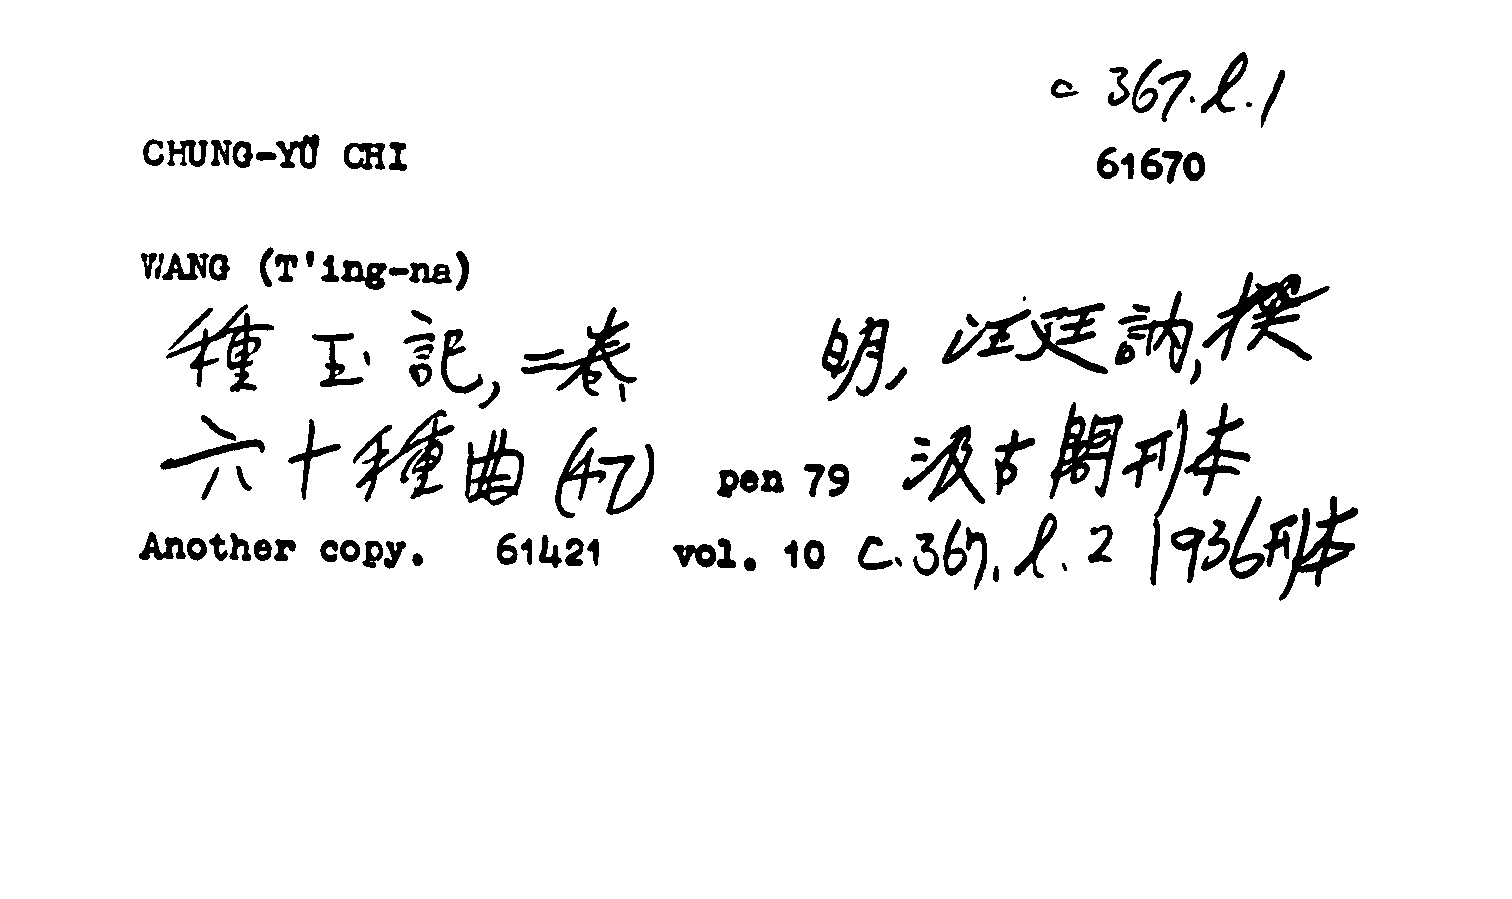 c 367.l.1
CHUNG-YÜ CHI
61670
WANG (T'ing-na)
種玉記, 二卷、 明, 汪廷訥, 撰
六十種曲 () pen 79 汲古閣刊本
Another copy. 61421 vol. 10 C.367.l.2 1936刊本